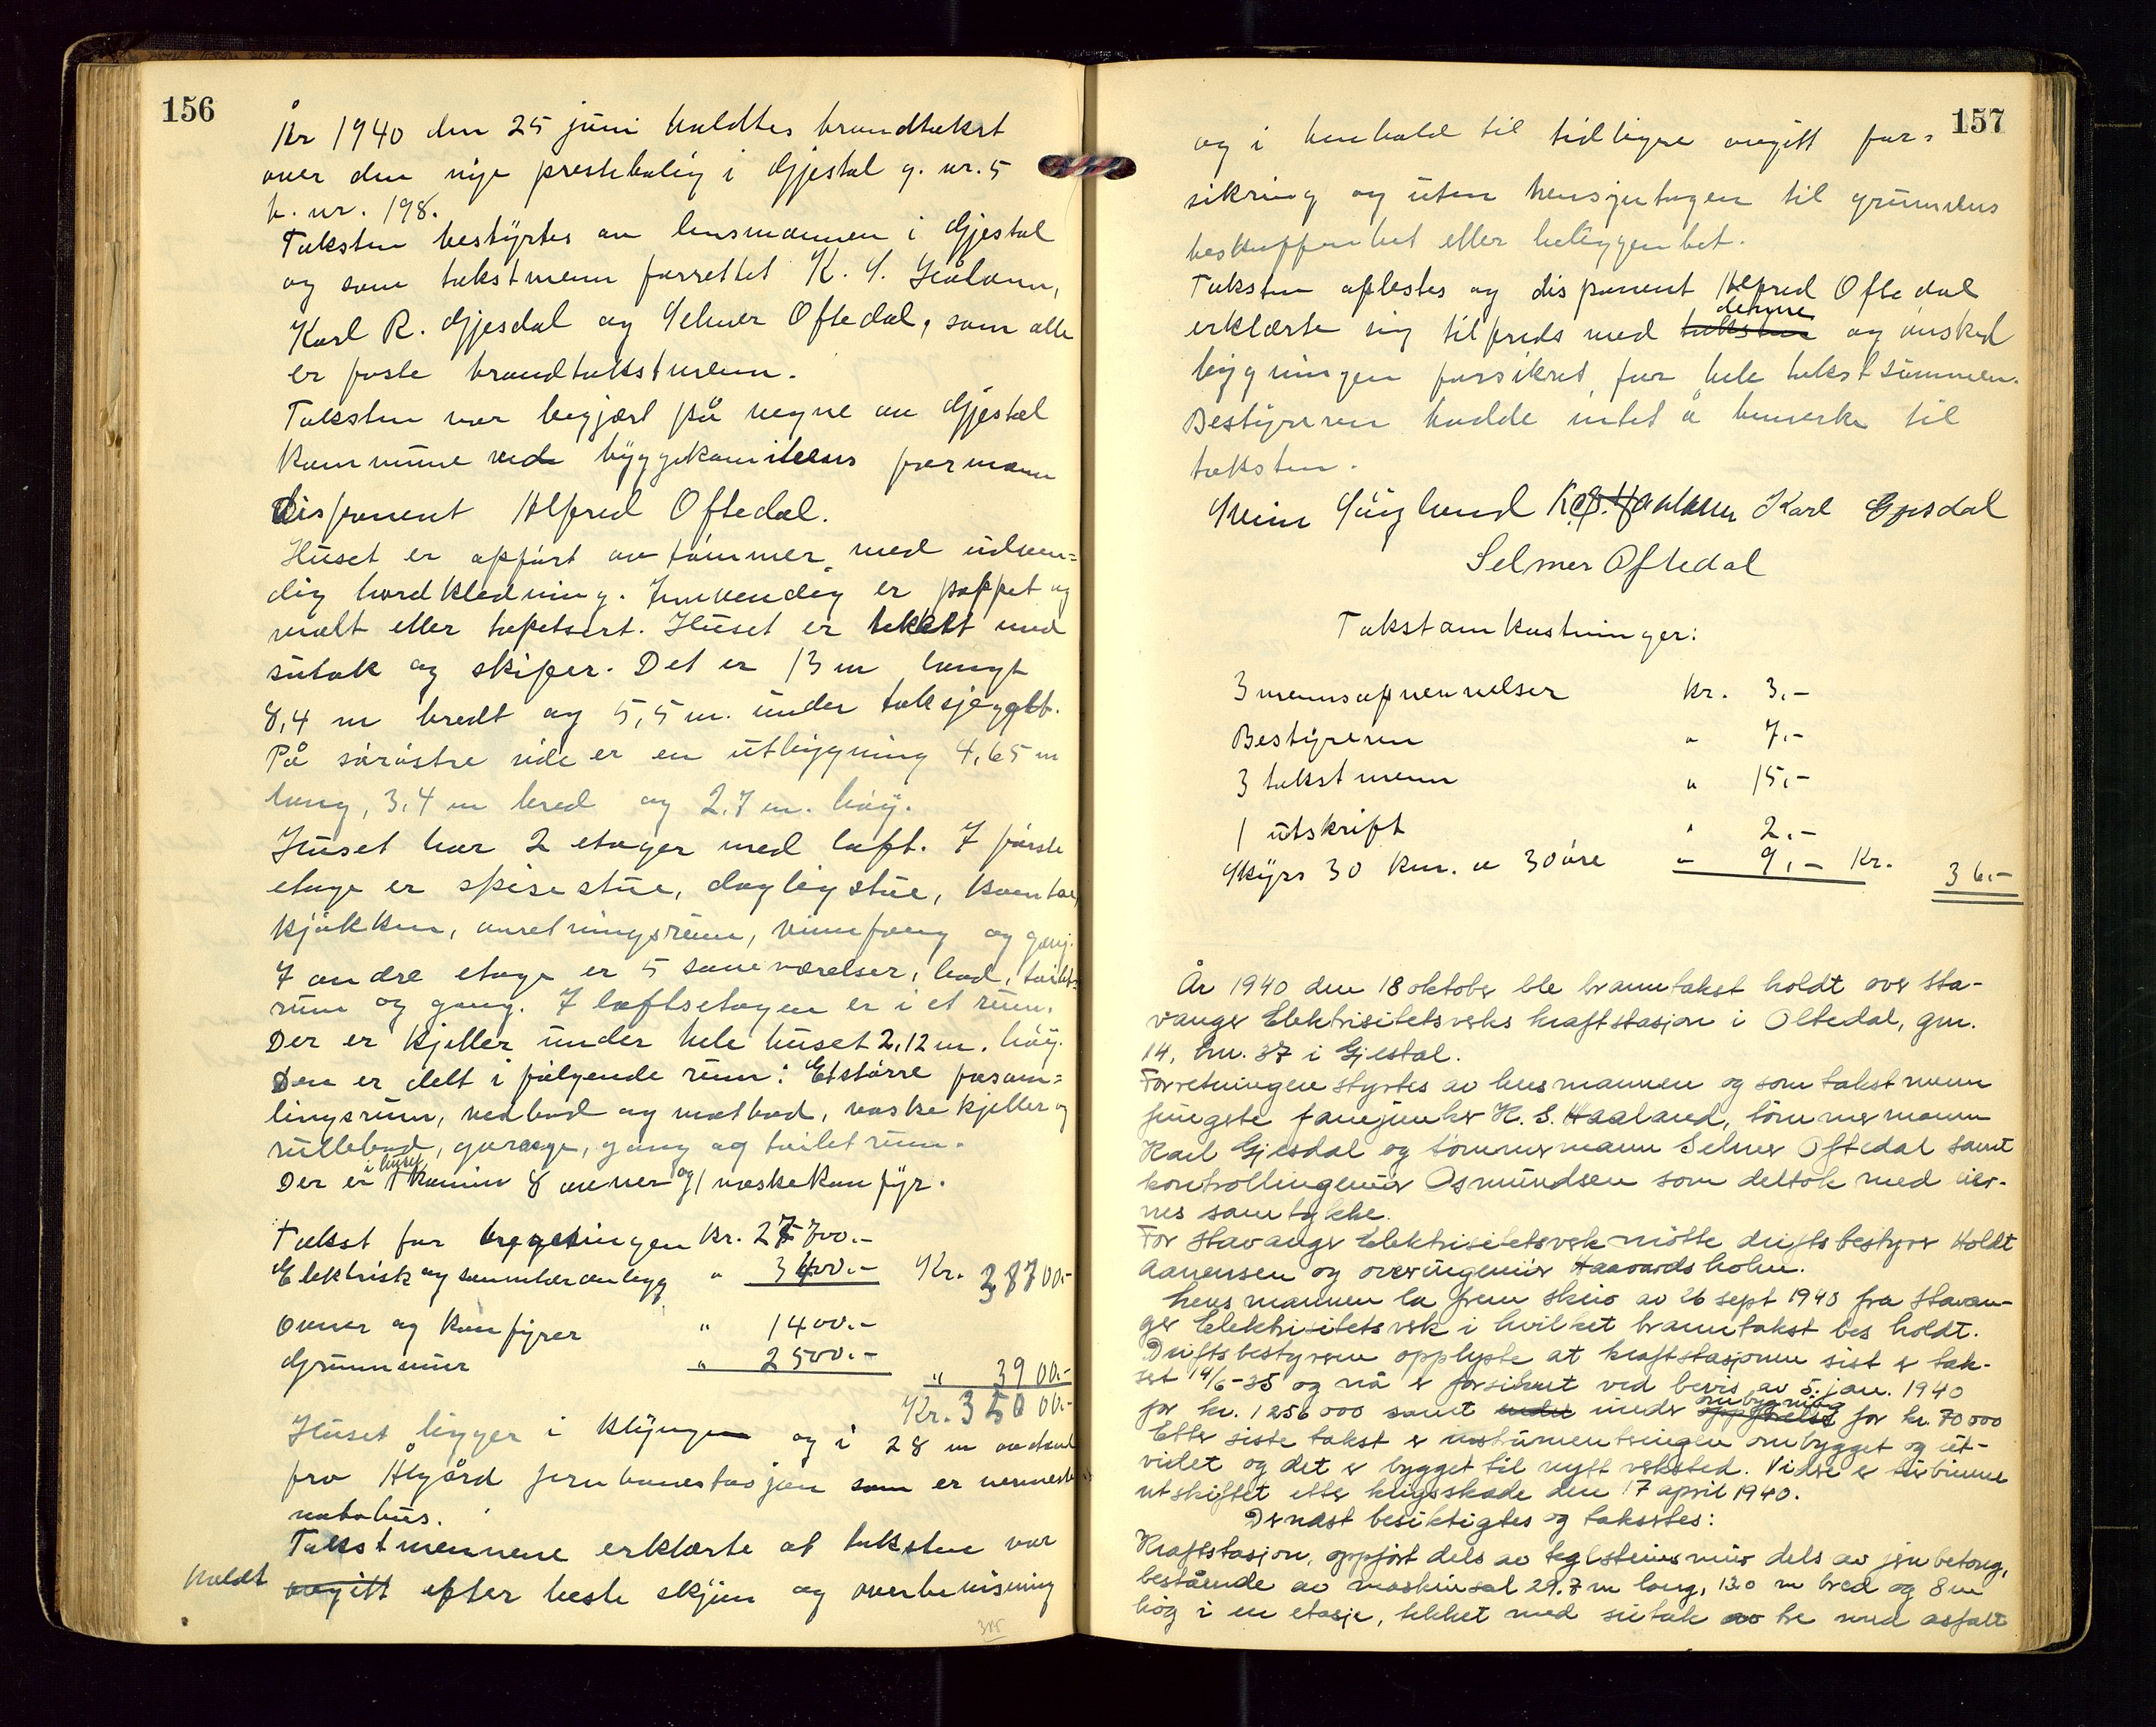 156
År 1940 den 25 juni holdtes brandtakst
over den nye prestebolig i Gjestal g. nr. 5
b. nr. 198.
Taksten bestyrtes av lensmannen i Gjestal
og som takstmenn forrettet K. S. Håland,
Karl R. Gjesdal og Selmer Oftedal, som alle
er faste brandtakstmenn.
Taksten var begjært på vegne av Gjestal
kommune ved byggekomiteens formann
disponent Alfred Oftedal.
Huset er opført av tømmer med udven-
dig bordkledning. Innvendig er pappet og
malt eller tapetsert. Huset er tekket med
sutak og skifer. Det er 13 m langt
8,4 m bredt og 5,5 m. under takskjegget.
På sørøstre side er en utbygning 4,65 m
lang, 3,4 m bred og 2,7 m. høy.
Huset har 2 etager med loft. I første
etage er spisestue, dagligstue, kontor,
kjøkken, anretningsrum, vinnfang og gang.
I andre etage er 5 soveværelser, bad, toilet-
rum og gang. I loftsetagen er i et rum.
Der er kjeller under hele huset 2,12 m. høy.
Den er delt i følgende rum: Et større forsam-
lingsrum, vedbod og matbod, vaskekjeller og
rullebod, garasje, gang og toiletrum.
Der er i huset 1 kamin 8 ovner og 1 vaskekomfyr.
Takst for bygningen Kr. 27700.-
Elektrisk og sanitæranlegg " 3400.- Kr. 38700.-
Ovner og komfyrer " 1400.-
Grunnmur " 2500.-
" 3900.-
Kr. 35000.-
Huset ligger i klynge og i 28 m avstand
fra Ålgård jernbanestasjon som er nermeste
nabohus.
Takstmennene erklærte at taksten var
holdt avgitt efter beste skjøn og overbevisning
157
og i henhold til tidligere avgitt for-
sikring og uten hensyntagen til grunnens
beskaffenhet eller beliggenhet.
Taksten oplestes og disponent Alfred Oftedal
erklærte sig tilfreds med taksten denne og ønsked
bygningen forsikret for hele takstsummen.
Bestyreren hadde intet å bemerke til
taksten.
Svein Kar Gjesdal
Selmer Oftedal
Takstomkostninger:
3 mennsopnevnelser kr. 3.-
Bestyreren " 7.-
3 takstmenn " 15.-
1 utskrift " 2.-
Skyss 30 km. a 30 øre " 9.- Kr. 36.-
År 1940 den 18 oktober ble branntakst holdt over Sta-
vanger Elektrisitetsverks kraftstasjon i Oltedal, gnr.
14, bnr. 37 i Gjestal.
Forretningen styrtes av lensmannen og som takstmenn
fungerte fanejunker K. S. Haaland, tømmermann
Karl Gjesdal og tømmermann Selmer Oftedal samt
kontrollingeniør Osmundsen som deltok med eier-
nes samtykke.
For Stavanger Elektrisitetsverk møtte driftsbestyrer Holdt
Aanensen og overingeniør Haavardsholm.
Lensmannen la frem skriv av 26 sept 1940 fra Stavan-
ger Elektrisitetsverk i hvilket branntakst bes holdt.
Driftsbestyreren opplyste at kraftstasjonen sist er tak-
sert 14/6-35 og nå er forsikret ved bevis av 5. jan. 1940
for kr. 1256000 samt under under oppførelse ombygning for kr. 70000
Efter siste takst er instrumenteringen ombygget og ut-
videt og det er bygget til nytt verksted. Videre er turbinene
utskiftet efter krigsskade den 17 april 1940.
Dernæst besiktigtes og taksertes:
Kraftstasjon, oppført dels av teglsteinsmur dels av jernbetong,
bestående av maskinsal 29.7 m lang, 13.0 m bred og 8 m
høg i en etasje, tekket med sutak av tre med asfalt